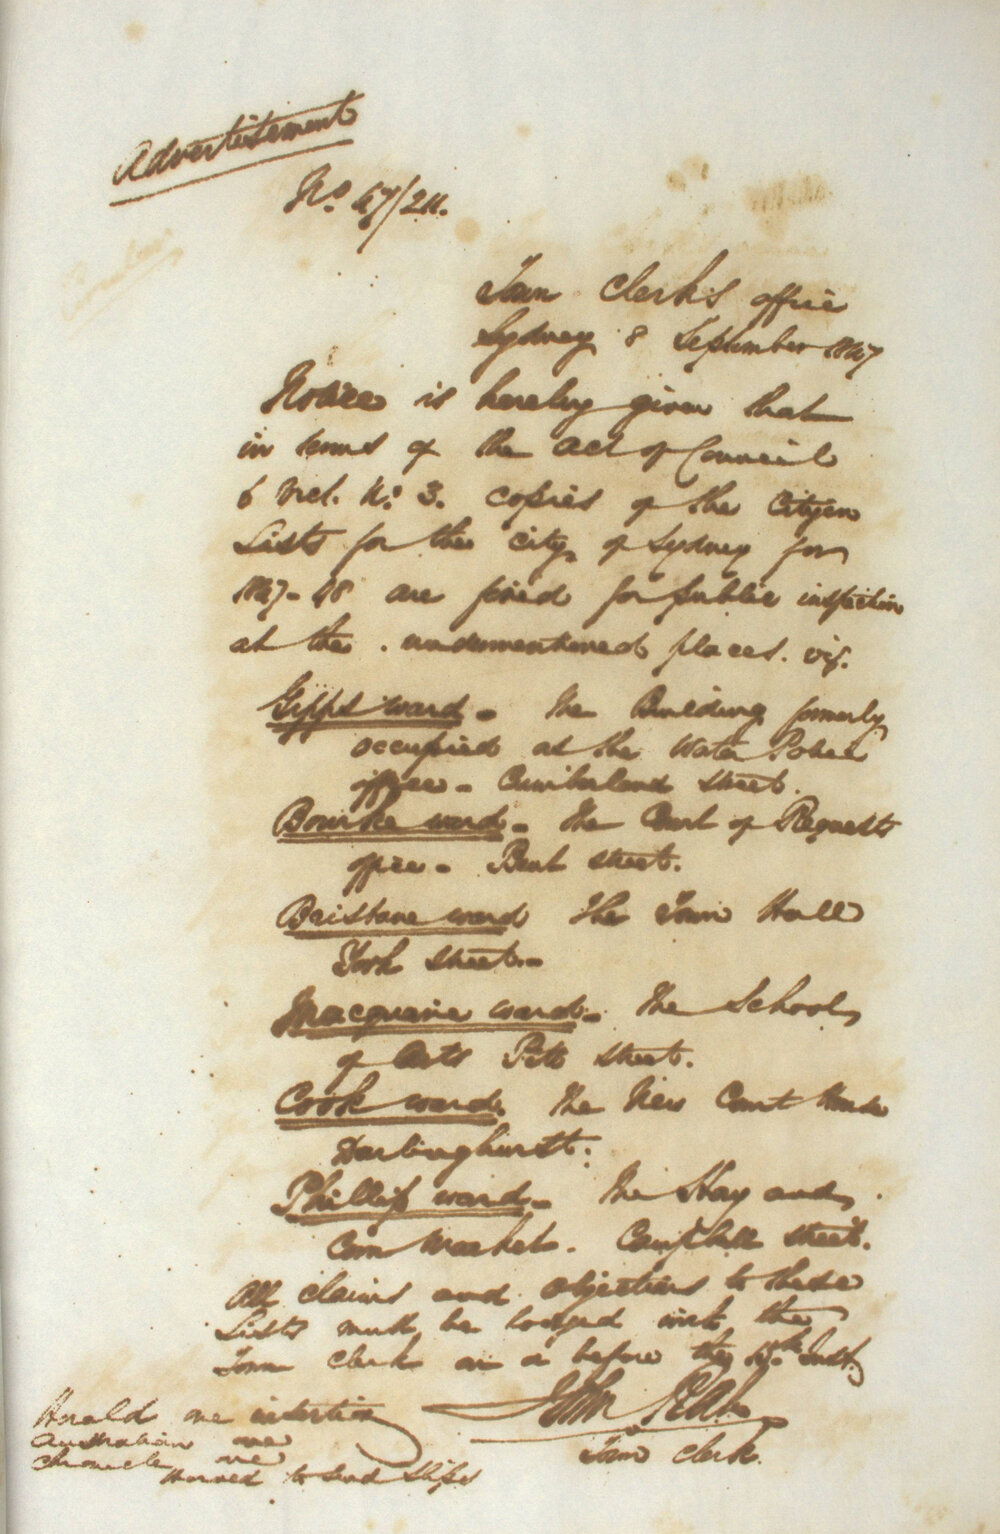 Advertisement
No. 47/24.
Town Clerk's office
Sydney 8 September 1847
Notice is hereby given that
in terms of the Act of Council
6 Vict. No. 3. copies of the Citizen
Lists for the city of Sydney for
1847-48 are fixed for public inspection
at the undermentioned places. viz.
Gipps ward - The Building formerly
occupied as the Water Police
office - Cumberland street.
Bourke ward - The Court of Requests
office - Bent street.
Brisbane ward The Town Hall
York street -
Macquarie ward - The School
of Arts Pitt street.
Cook ward. The New Court House
Darlinghurst.
Phillip ward - The Hay and
Corn Market. Campbell street.
All claims and objections to these
Lists must be lodged with the
Town Clerk on or before the 15th Inst.
John Rae
Town Clerk.
Herald one insertion
Australian one
Chronicle one
to send slips